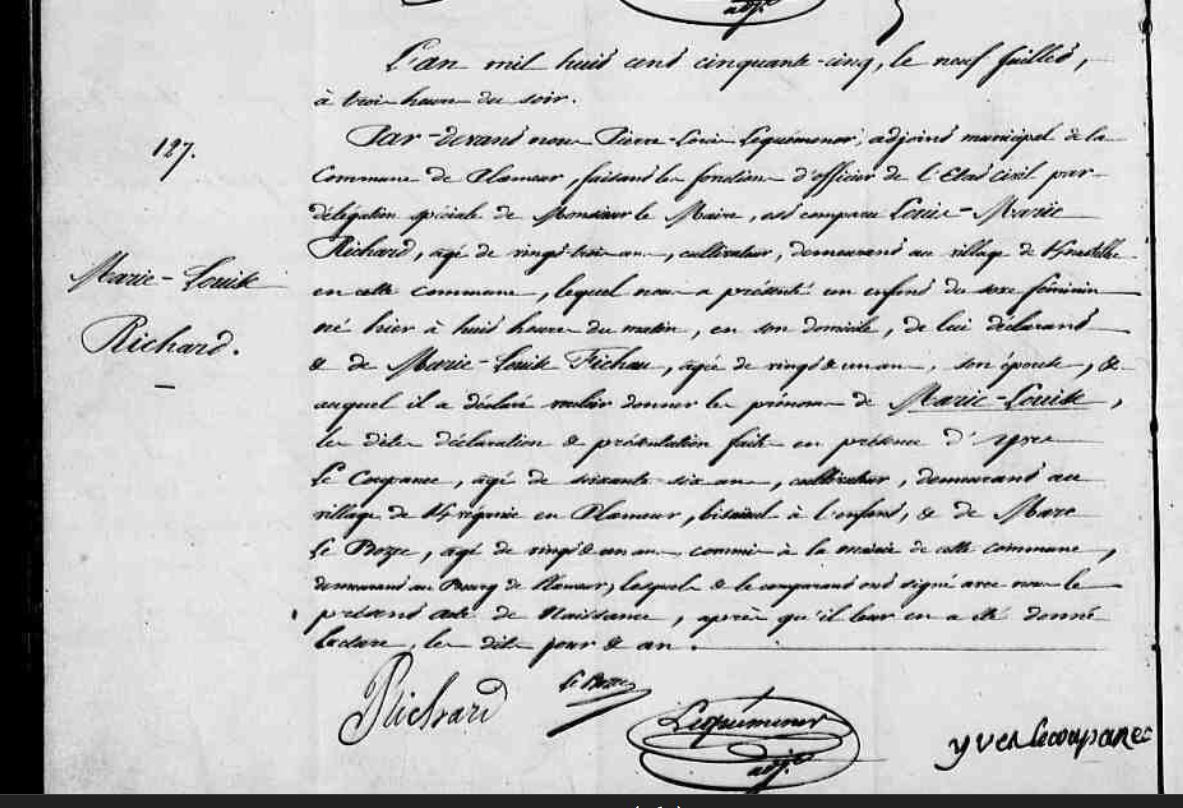 adj.t
L'an mil huit cent cinquante-cinq, le neuf juillet,
à trois heures du soir.
127.
Par-devant nous Pierre-Louis Lequémener, adjoint municipal de la
Commune de Plœmeur, faisant les fonctions d'officier de l'Etat civil par
délégation spéciale de Monsieur le Maire, est comparu Louis-Marie
Richard, agé de vingt-trois ans, cultivateur, demeurant au village de
Marie-Louise
en cette commune, lequel nous a présenté un enfant du sexe féminin
né hier à huit heures du matin, en son domicile, de lui déclarant
Richard.
& de Marie-Louise Fichou, agée de vingt & un ans, son épouse, &
auquel il a déclaré vouloir donner les prénoms de Marie-Louise,
les dites déclaration & présentation faites en présence d'Yves
Le Coupanec, agé de soixante-six ans, cultivateur, demeurant au
village de en Plœmeur, bisaïeul à l'enfant, & de Marc
Le Bozec, agé de vingt & un ans commis à la mairie de cette commune,
demeurant au Bourg de Plœmeur, lesquels & le comparant ont signé avec nous le
présent acte de Naissance, après qu'il leur en a été donné
lecture, les dits jour & an.
Richard Le Bozec
Lequémener yves lecoupanec
adj.t